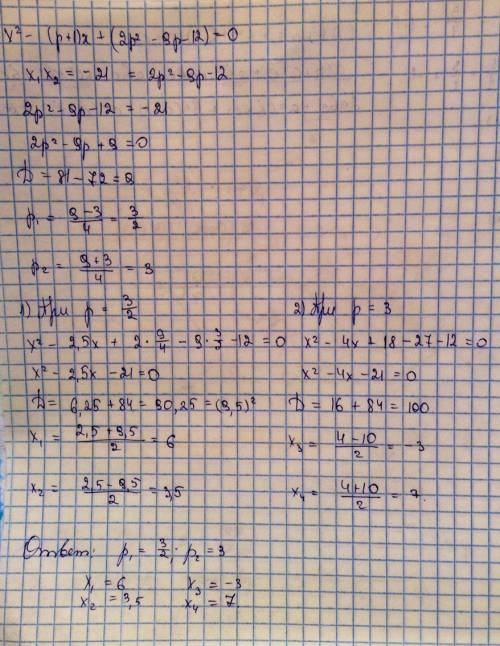 x² - (p+1)x + (2p² - 9p - 12) = 0
x₁x₂ = -21 = 2p² - 9p - 12
2p² - 9p - 12 = -21
2p² - 9p + 9 = 0
D = 81 - 72 = 9
p₁ = (9-3)/4 = 3/2
p₂ = (9+3)/4 = 3
1) При p = 3/2
x² - 2,5x + 2·9/4 - 9·3/2 - 12 = 0
x² - 2,5x - 21 = 0
D = 6,25 + 84 = 90,25 = (9,5)²
x₁ = (2,5+9,5)/2 = 6
x₂ = (2,5-9,5)/2 = 3,5
2) При p = 3
x² - 4x + 18 - 27 - 12 = 0
x² - 4x - 21 = 0
D = 16 + 84 = 100
x₃ = (4-10)/2 = -3
x₄ = (4+10)/2 = 7.
Ответ: p₁ = 3/2; p₂ = 3
x₁ = 6 x₃ = -3
x₂ = 3,5 x₄ = 7.